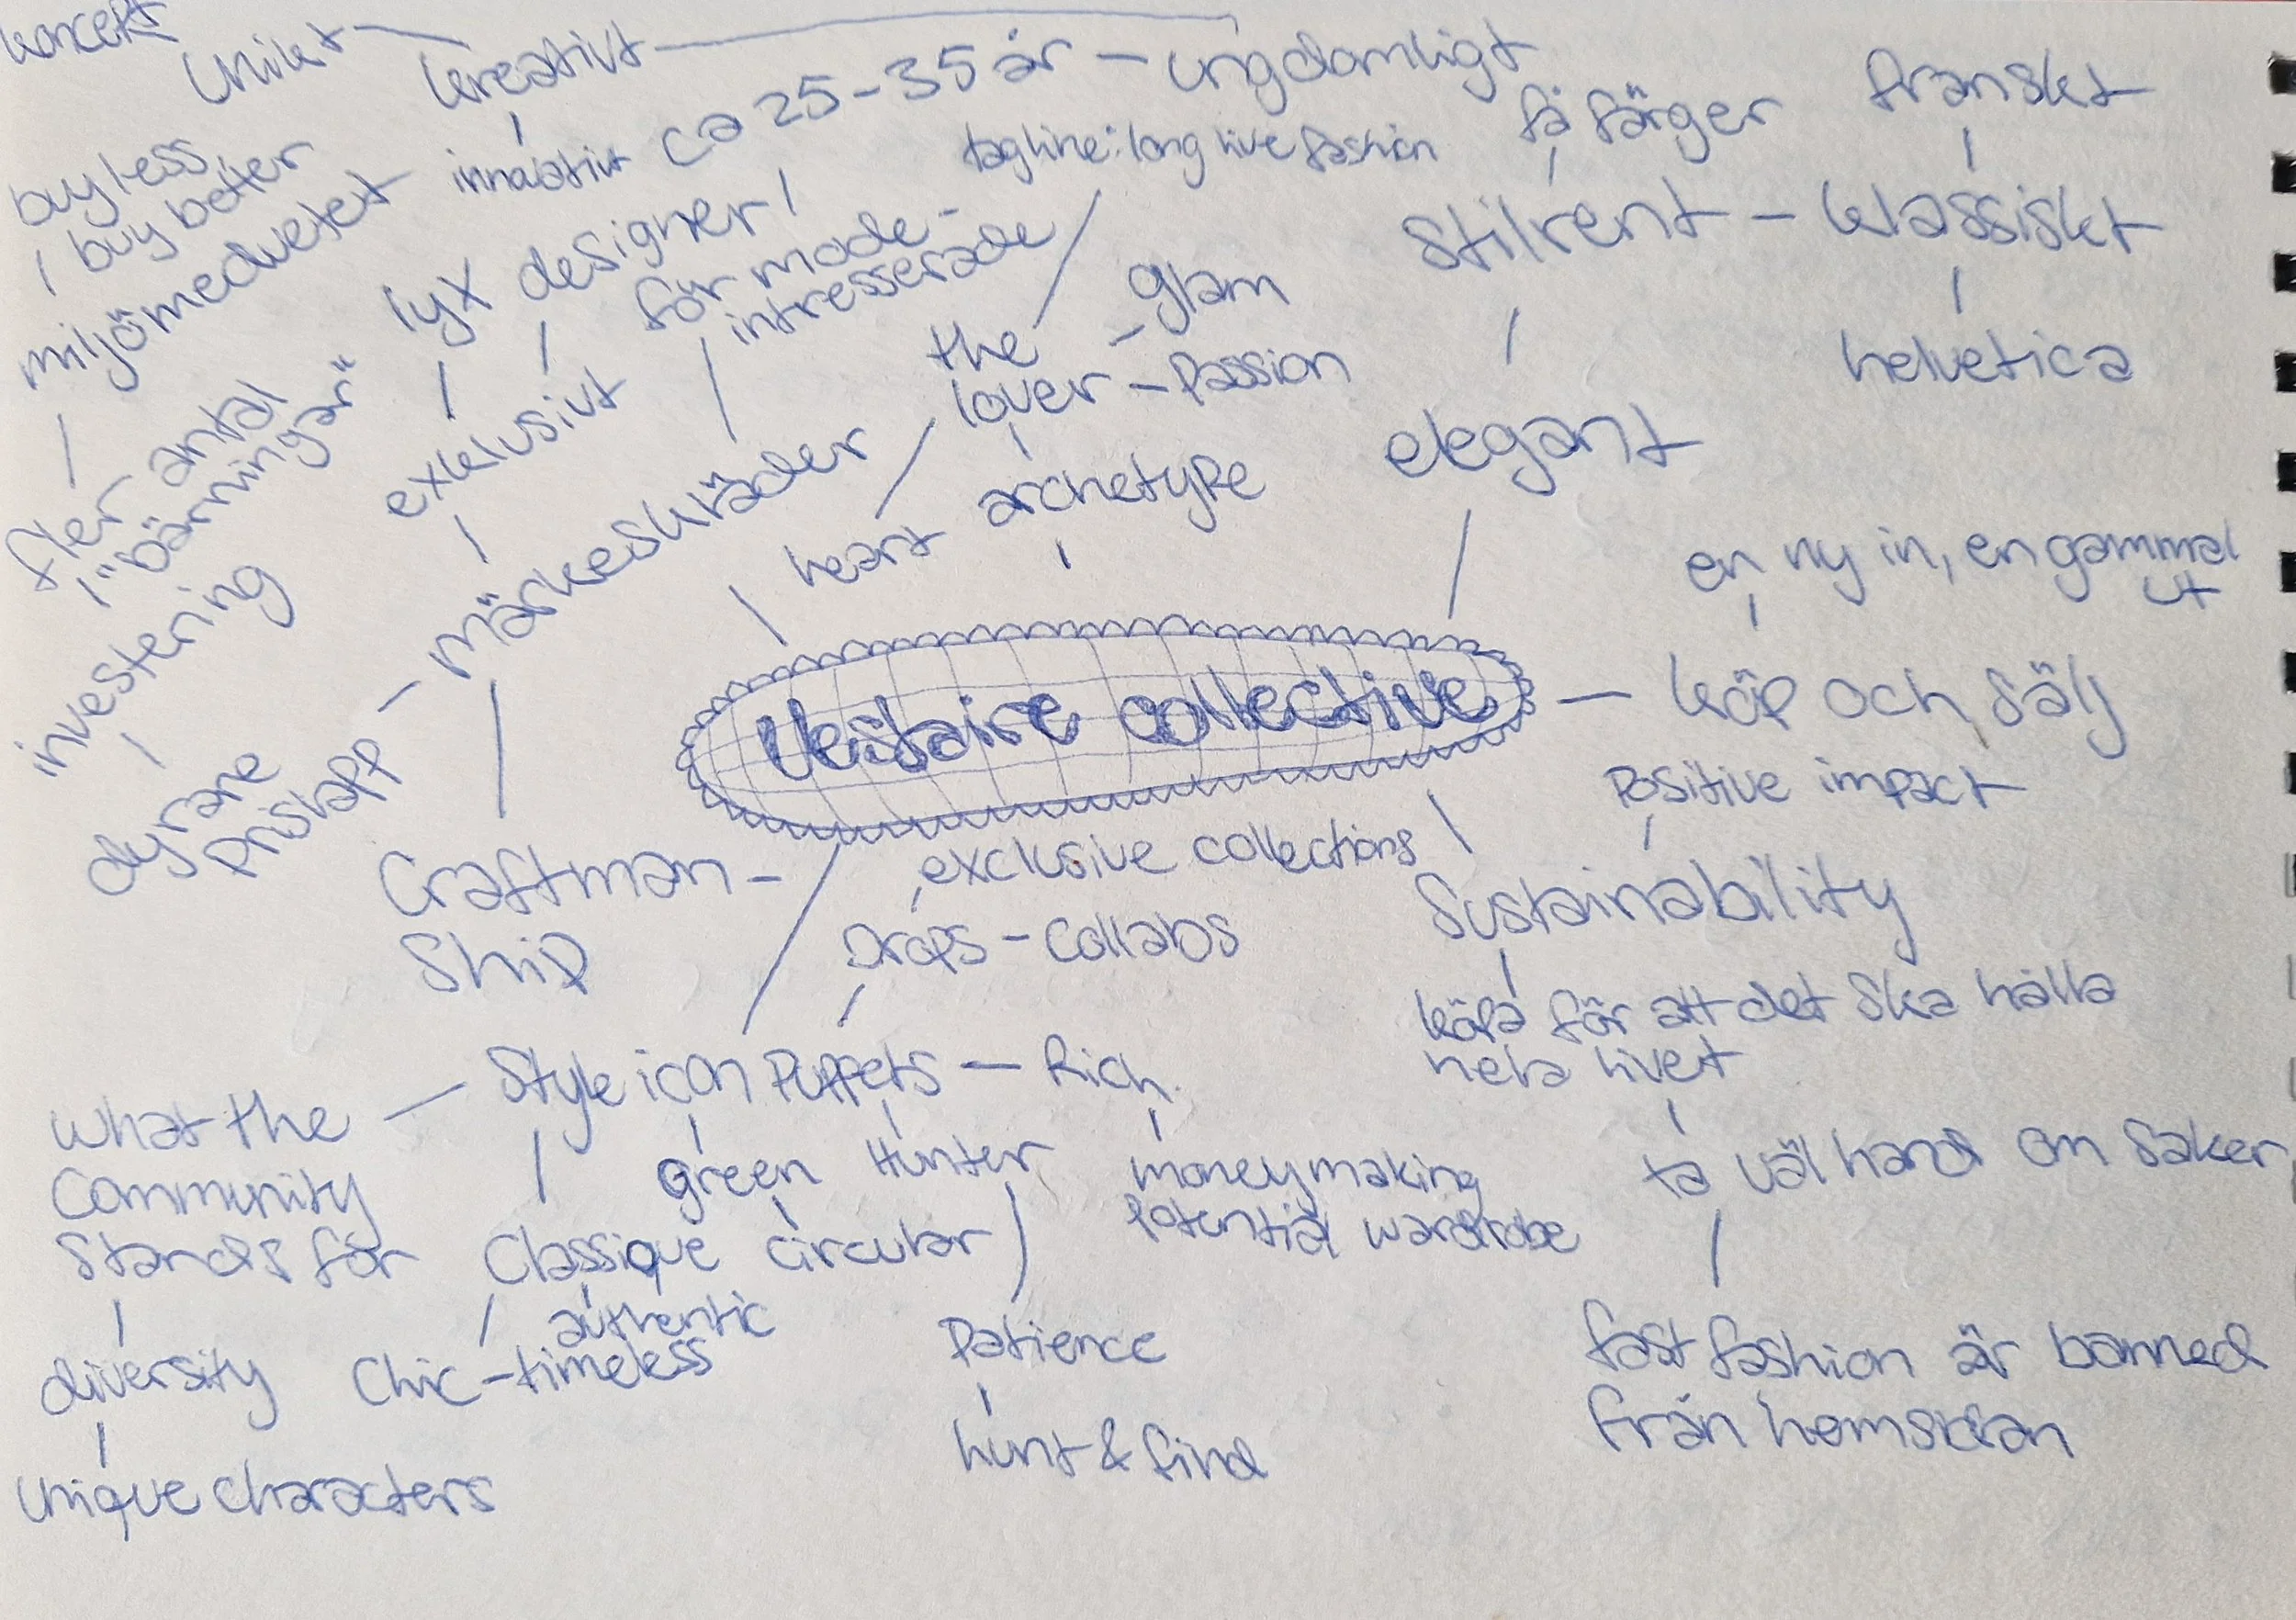 koncept
unikt
kreativt
innovativt
ca 25-35 år - ungdomligt
tagline: long live fashion
få färger
franskt
buy less
buy better
miljömedvetet
lyx
designer
för mode-
intresserade
the
lover
- glam
- Passion
stilrent - klassiskt
helvetica
fler antal
"bärningar"
exklusivt
märkeskläder
heart
archetype
elegant
investering
dyrare
prislapp
en ny in, en gammal
ut
Vestiaire collective
köp och sälj
Positive impact
Craftman-
Ship
exclusive collections
Drops - Collabs
Sustainability
köpa för att det ska hålla
hela livet
Style icon Puppets - Rich
what the
Community
Stands för
green
Hunter
moneymaking
Potential wardrobe
ta väl hand om saker
Classique
circular
authentic
Chic - timeless
diversity
unique characters
Patience
hunt & find
fast fashion är banned
från hemsidan